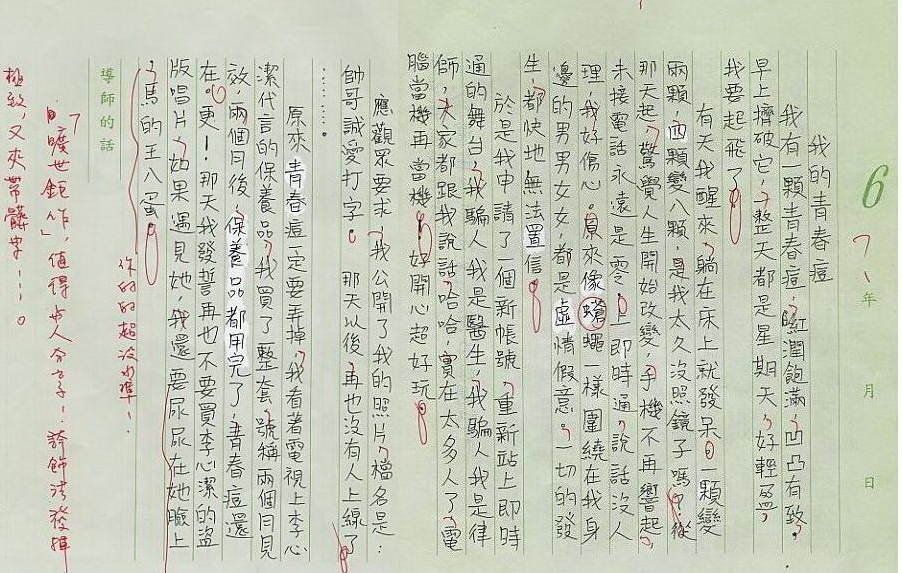 6
年 月 日
我的青春痘
我有一顆青春痘，紅潤飽滿，凹凸有致。
早上擠破它，整天都是星期天，好輕盈，
我要起飛了。
有天我醒來，躺在床上就發呆，一顆變
兩顆，四顆變八顆，是我太久沒照鏡子嗎？從
那天起，驚覺人生開始改變，手機不再響起，
未接電話永遠是零。上即時通，說話沒人
理，我好傷心。原來像蟾蠅一樣圍繞在我身
邊的男男女女，都是虛情假意。一切的發
生，都快地無法置信。
於是我申請了一個新帳號，重新站上即時
通的舞台，我騙人我是醫生，我騙人我是律
師，大家都跟我說話，哈哈，實在太多人了，電
腦當機再當機，好開心超好玩。
應觀眾要求，我公開了我的照片，檔名是：
帥哥誠愛打字。那天以後，再也沒有人上線了
……。
原來青春痘一定要弄掉，我看著電視上李心
潔代言的保養品，我買了整套，號稱兩個月見
效，兩個月後，保養品都用完了，青春痘還
在。更！那天我發誓再也不要買李心潔的盜
版唱片，如果遇見她，我還要尿尿在她臉上
，馬的王八蛋。
導師的話
你的的超沒水準！
「曠世鉅作」，值得與人分享！誇飾法發揮
極致，又夾帶髒字！！。